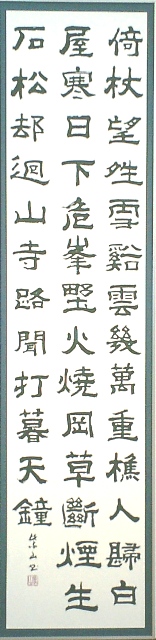 倚杖望晴雪谿雲幾萬重樵人歸白
屋寒日下危峯野火燒岡草斷煙生
石松却迴山寺路聞打暮天鐘